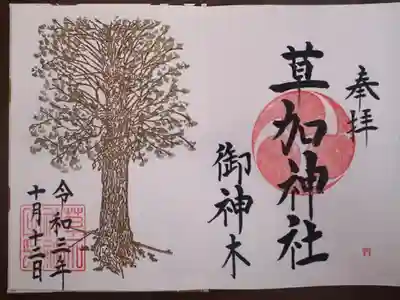 奉拝
草加神社
御神木
令和二年
十月十二日